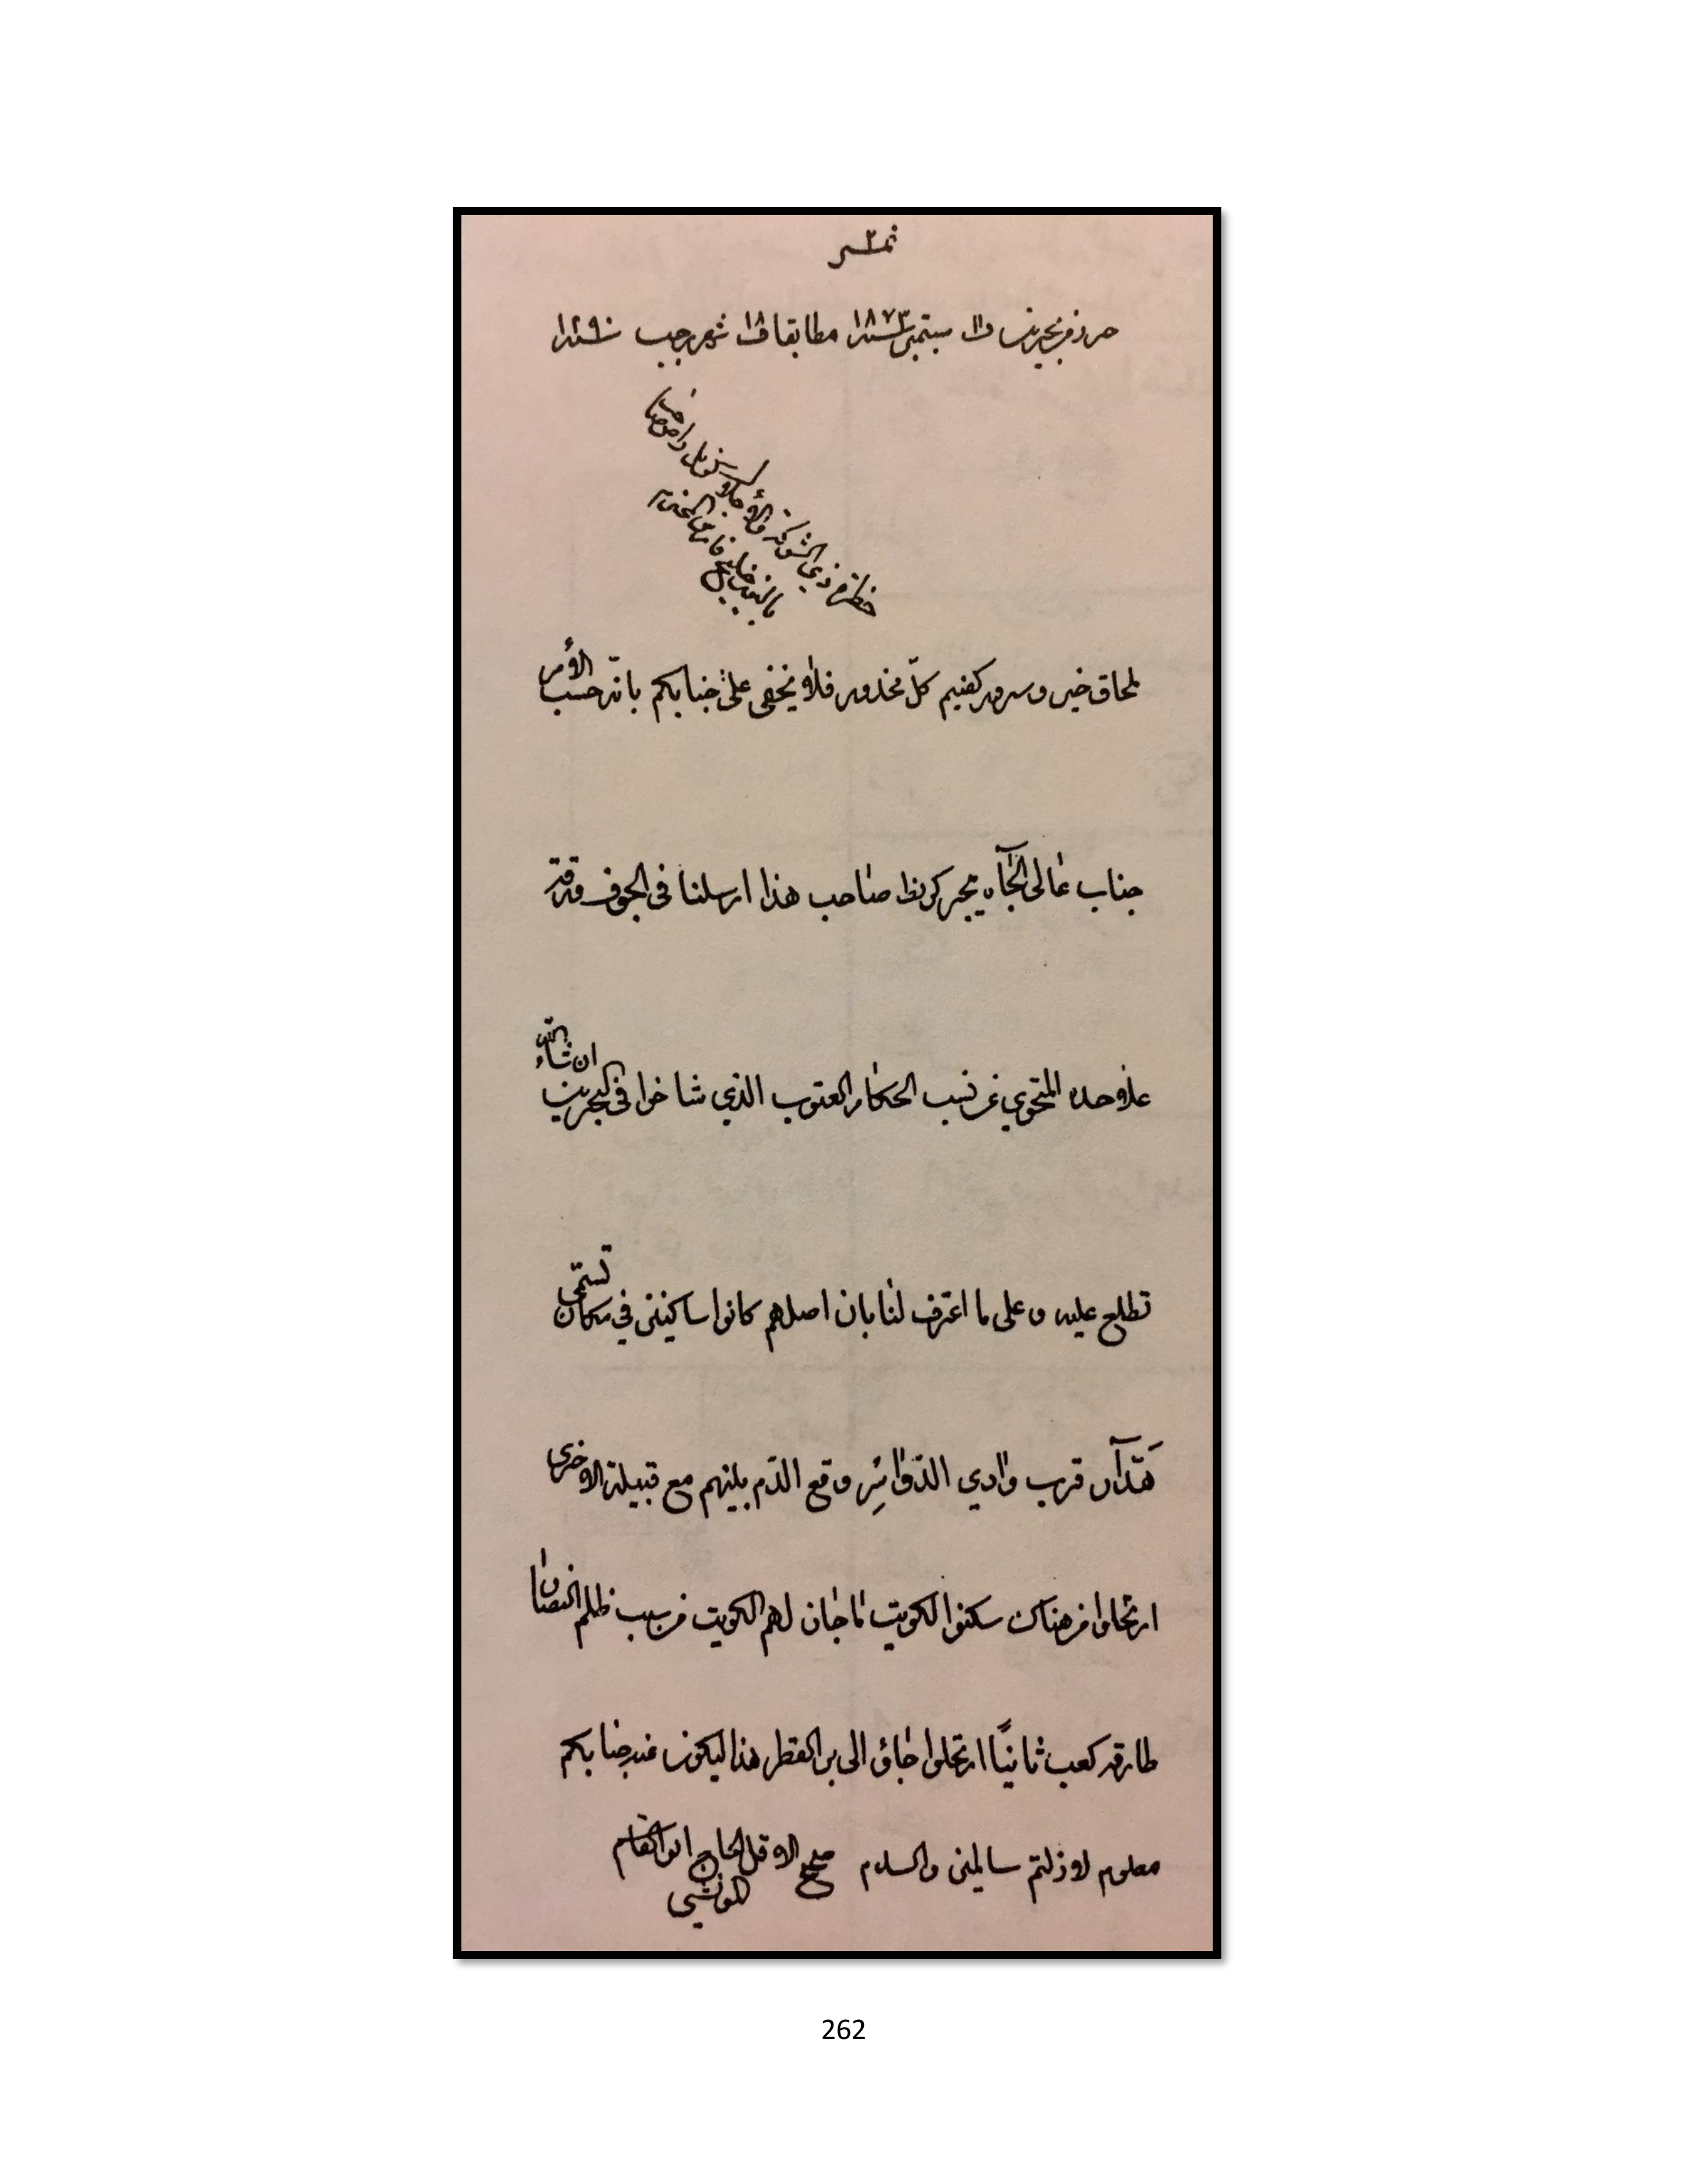 نمبر ٢
حرر في بحرين في ١١ سبتمبر سنة ١٨٧٣ مطابقا في ١٨ شهر رجب سنة ١٢٩٠
حضرة ذي الشوكة والأجلال كرنويل راص صاحب
باليوز خليج فارس المحترم
لمحاق خير وسرور كفيتم كل محذور فلا يخفى على جنابكم بانه حسب الأمر
جناب عالى الجآه ميجر كرنط صاحب هذا ارسلنا فى الجوف ورقة
علاوحده المحتوي عن نسب الحكام العتوب الذي شاخوا فى البحرين ان شاء الله
تطلع عليه وعلى ما اعترف لنا بان اصلهم كانوا ساكنين في مكان تسمى
هَدّآر قرب وادي الدواسِر وقع الدم بينهم مع قبيلة الاخرى
ارتحلوا من هناك سكنوا الكويت ما جان لهم الكويت من سبب ظلم النصار
طارقه كعب ثانيًا ارتحلوا جاؤ الى بر القطر هذا ليكون عند جنابكم
معلوم لا زلتم سالمين والسلام صح الاقل الحاج ابو القاسم
المونشي
262